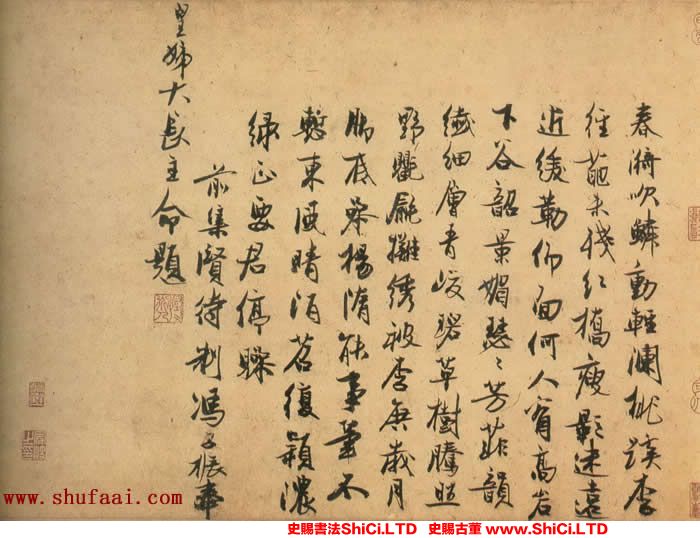 春漪吹鳞動輕瀾桃蹊李
徑葩未殘紅橋瘦影迷遠
近緩勒仰面何人看高岩
下谷韶景媚瑟〻芳菲韻
纖細層青峻碧草樹騰照
野氍毹攤繡被李無歲月
脚底參楊隋能事筆不
慙東風晴陌茗復穎濃
緑正要君停驂
前集賢待制馮子振奉
皇姊大長主命題
www.shufaai.com
史賜書法ShiCi.LTD 史賜古董 www.ShiCi.LTD